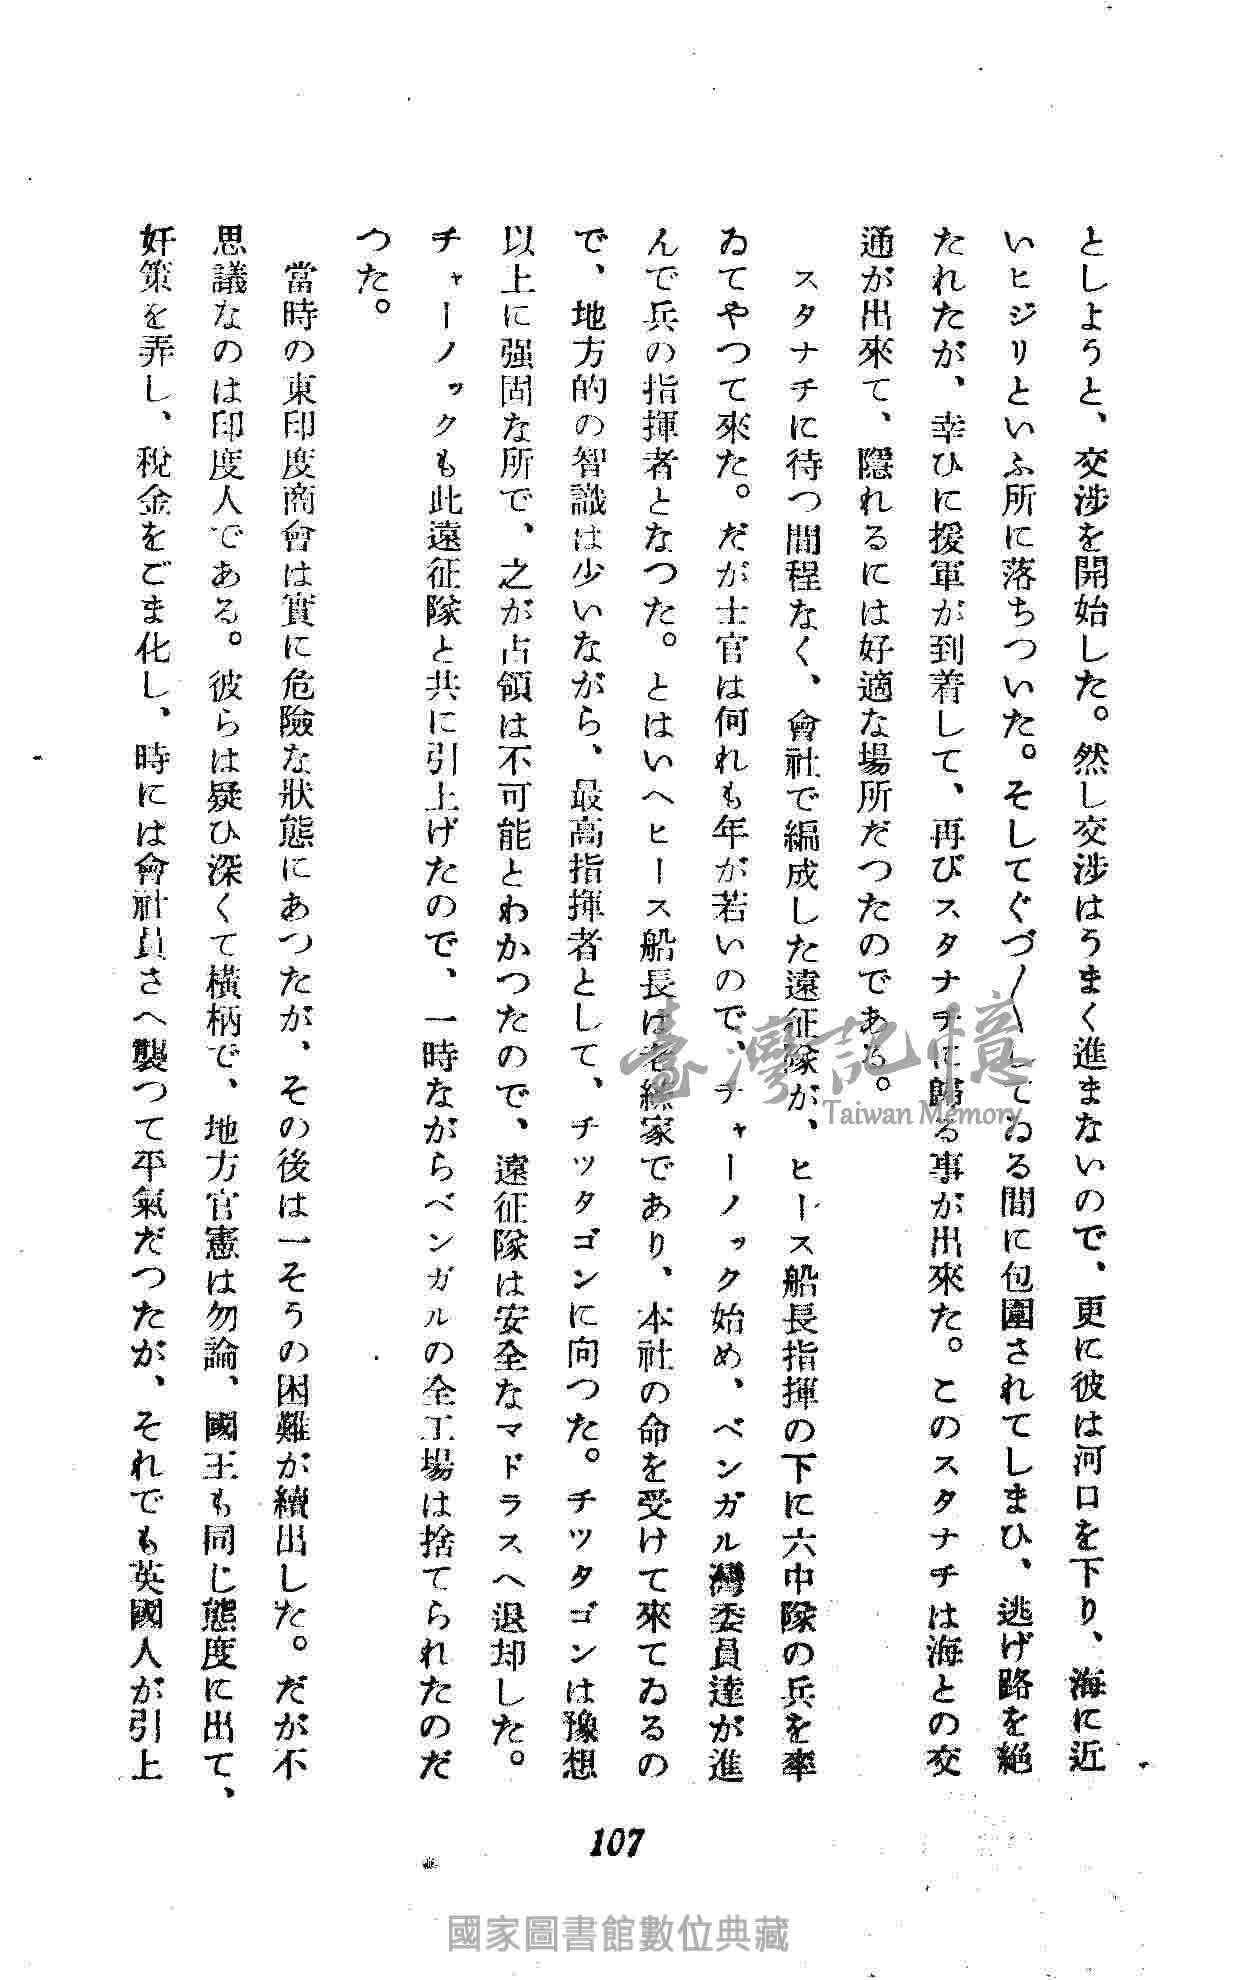 としようと、交渉を開始した。然し交渉はうまく進まないので、更に彼は河口を下り、海に近
いヒジリといふ所に落ちついた。そしてぐづ〱してゐる間に包圍されてしまひ、逃げ路を絕
たれたが、幸ひに援軍が到着して、再びスタナチに歸る事が出來た。このスタナチは海との交
通が出來て、隱れるには好適な場所だつたのである。
スタナチに待つ間程なく、會社で編成した遠征隊が、ヒース船長指揮の下に六中隊の兵を率
ゐてやつて來た。だが士官は何れも年が若いので、チャーノック始め、ベンガル灣委員達が進
んで兵の指揮者となつた。とはいへヒース船長は老練家であり、本社の命を受けて來てゐるの
で、地方的の智識は少いながら、最高指揮者として、チツタゴンに向つた。チツタゴンは豫想
以上に强固な所で、之が占領は不可能とわかつたので、遠征隊は安全なマドラスへ退却した。
チャーノックも此遠征隊と共に引上げたので、一時ながらベンガルの全工場は捨てられたのだ
つた。
當時の東印度商會は實に危險な狀態にあつたが、その後は一そうの困難が續出した。だが不
思議なのは印度人である。彼らは疑ひ深くて橫柄で、地方官憲は勿論、國王も同じ態度に出て、
奸策を弄し、稅金をごま化し、時には會社員さへ襲つて平氣だつたが、それでも英國人が引上
107
臺灣記憶
Taiwan Memory
國家圖書館數位典藏